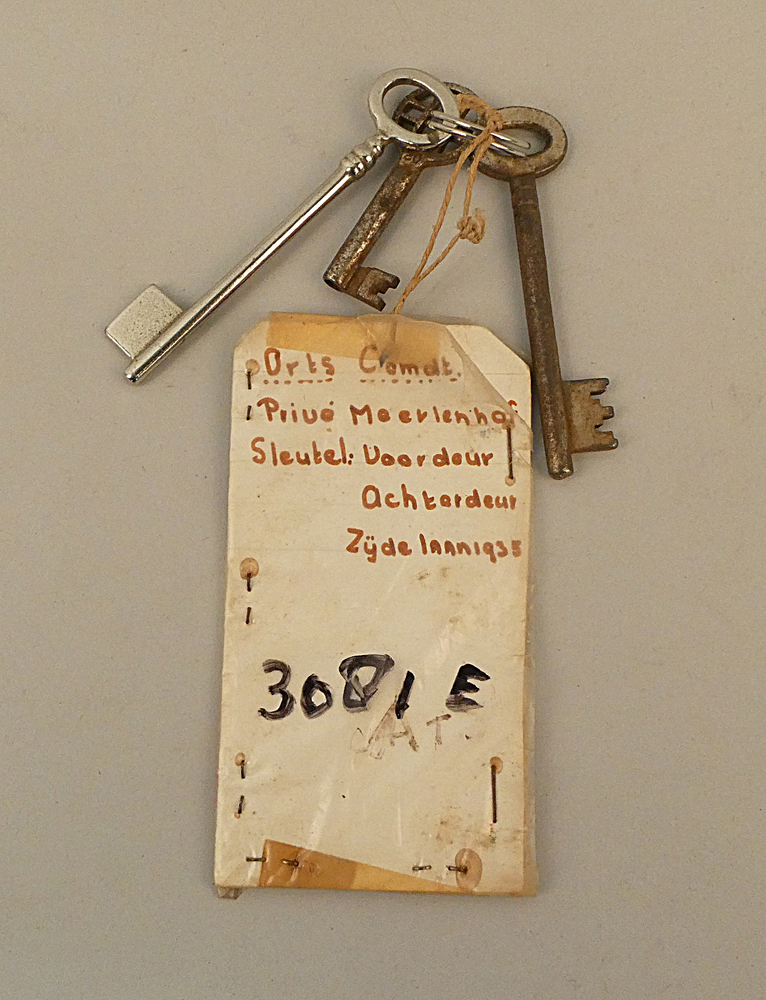 Orts Comdt.
Privé Meerlenhof
Sleutel: Voordeur
Achterdeur
Zÿde 1935
3081 E